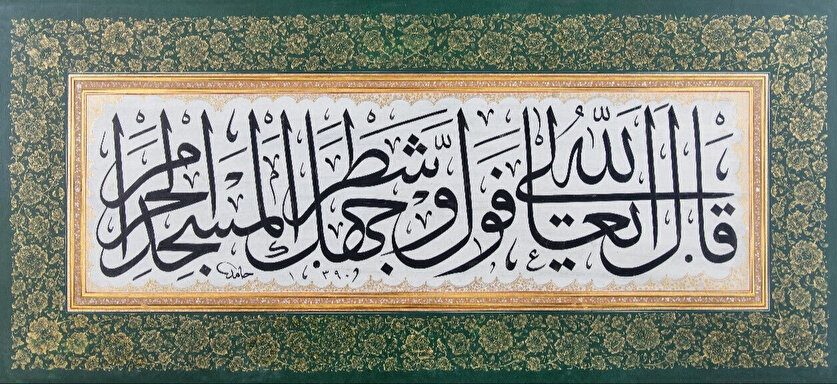 قال الله تعالى فول وجهك شطر المسجد الحرام
حامد ١٣٩٠